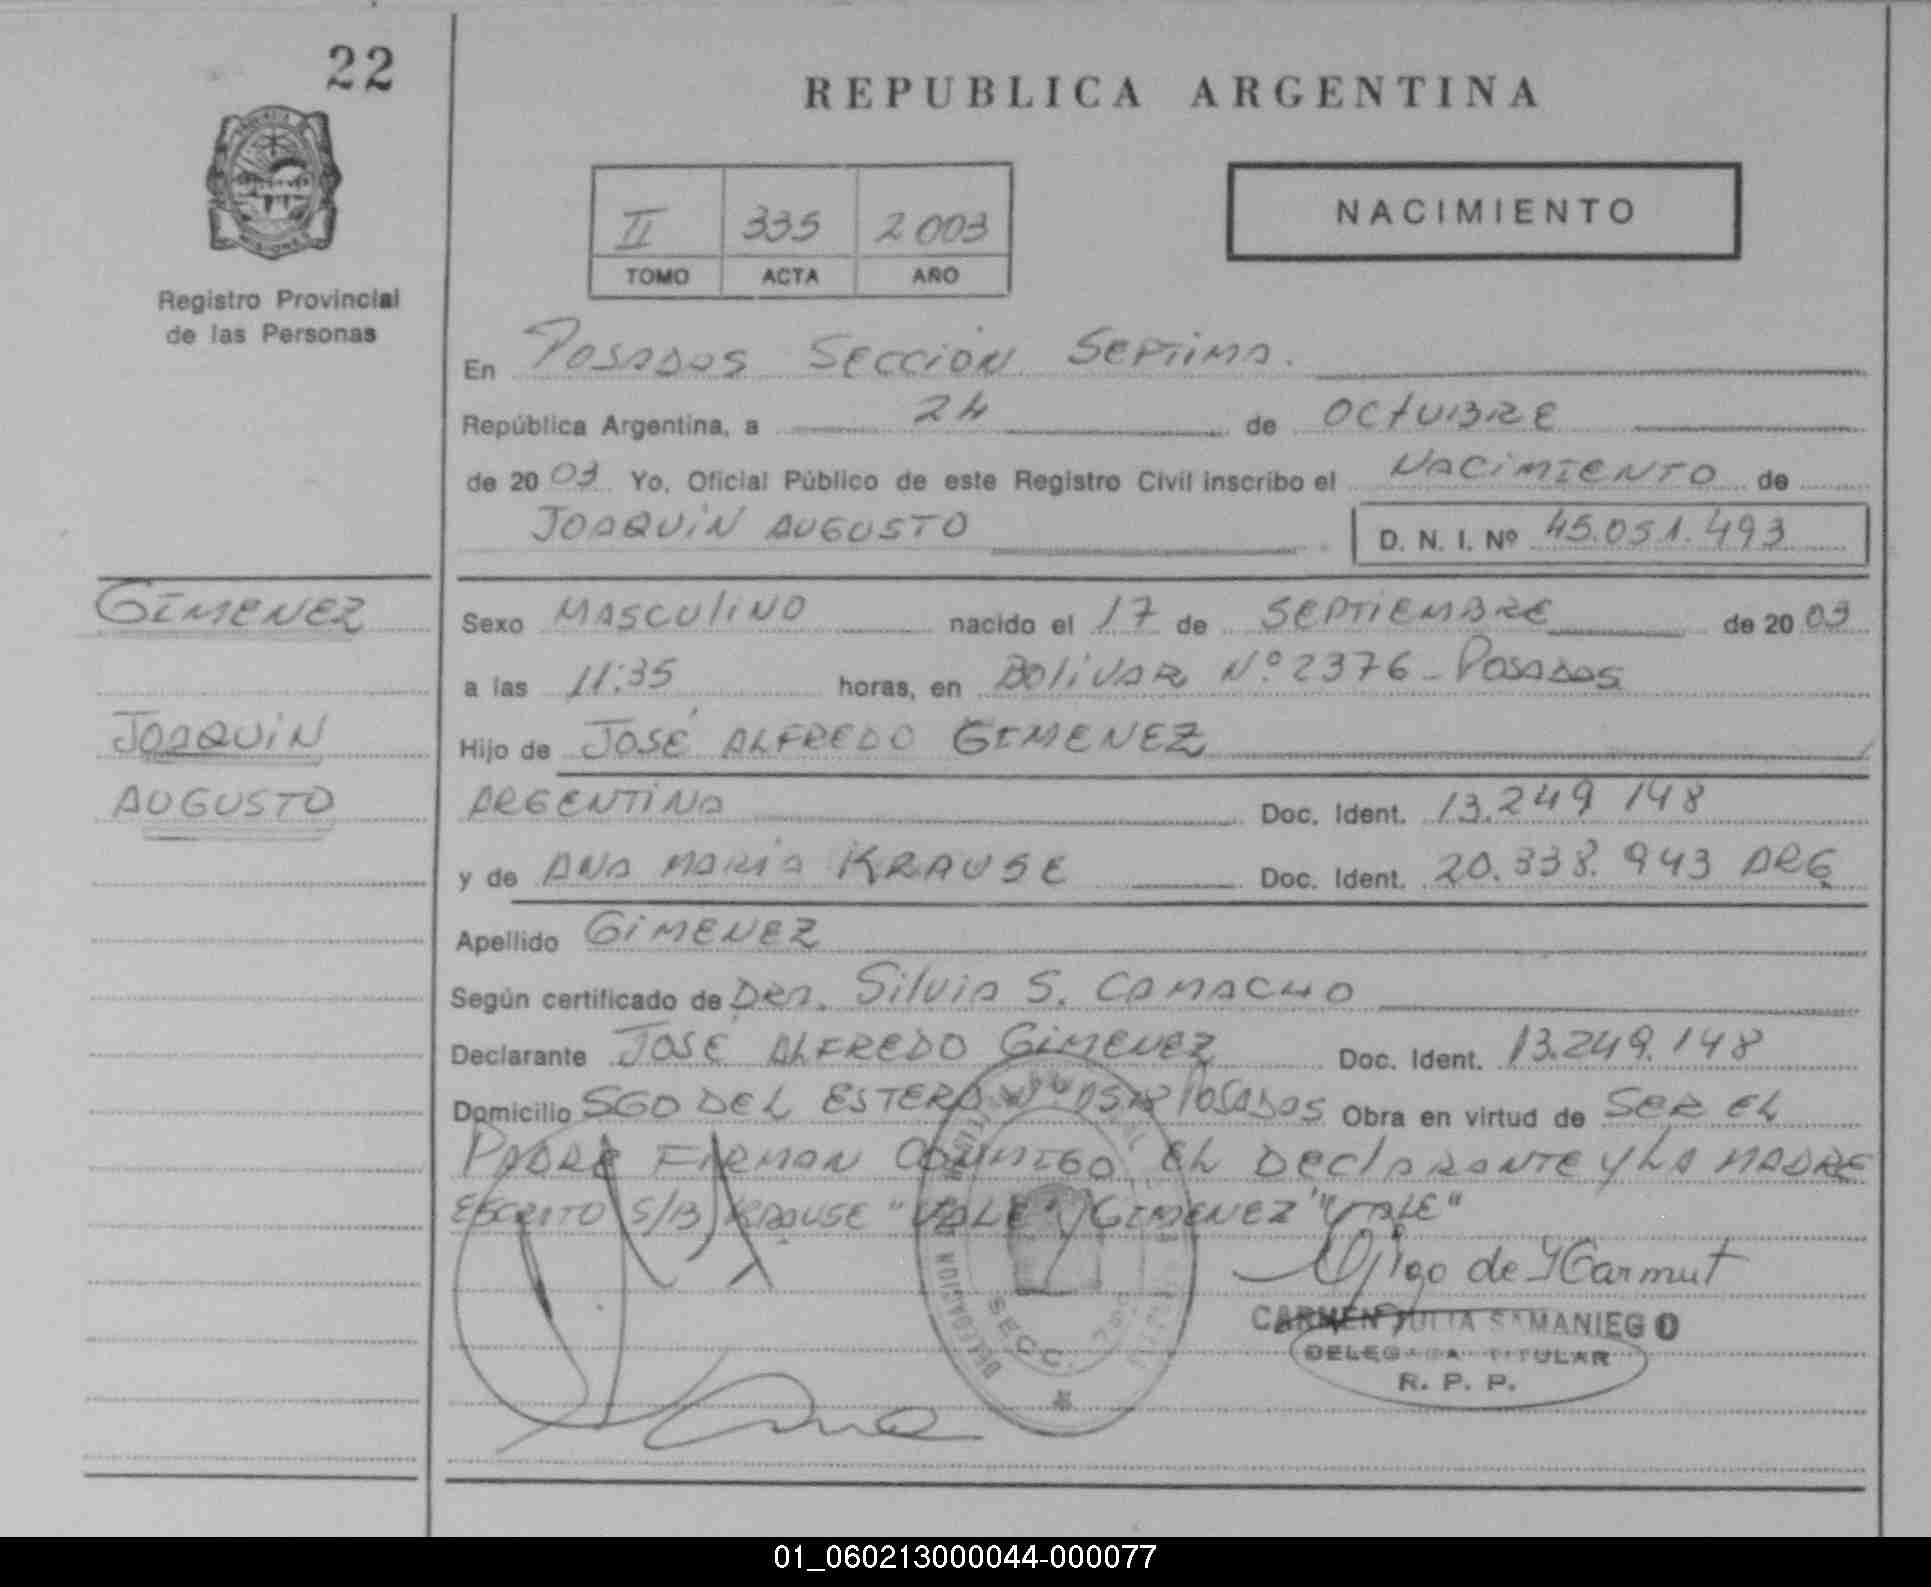 22
REPUBLICA ARGENTINA
II 335 2003
TOMO ACTA AÑO
NACIMIENTO
Registro Provincial
de las Personas
En POSADAS SECCION SEPTIMA.
República Argentina, a 24 de OCTUBRE
de 2003 Yo, Oficial Público de este Registro Civil inscribo el NACIMIENTO de
JOAQUIN AUGUSTO D. N. I. Nº 45.051.493
GIMENEZ
JOAQUIN
AUGUSTO
Sexo MASCULINO nacido el 17 de SEPTIEMBRE de 2003
a las 11:35 horas, en BOLIVAR Nº 2376 - POSADAS
Hijo de JOSÉ ALFREDO GIMENEZ
ARGENTINA Doc. Ident. 13.249 148
y de ANA MARIA KRAUSE Doc. Ident. 20.338.943 ARG
Apellido GIMENEZ
Según certificado de DRA. Silvia S. CAMACHO
Declarante JOSÉ ALFREDO GIMENEZ Doc. Ident. 13.249.148
Domicilio SGO DEL ESTERO Nº POSADAS Obra en virtud de SER EL
PADRE FIRMAN CONMIGO EL DECLARANTE Y LA MADRE
ESCRITO S/B KRAUSE "VALE" GIMENEZ "VALE"
DELEGACION
SECC.
CARMEN JULIA SAMANIEGO
DELEGADA TITULAR
R. P. P.
01_060213000044-000077